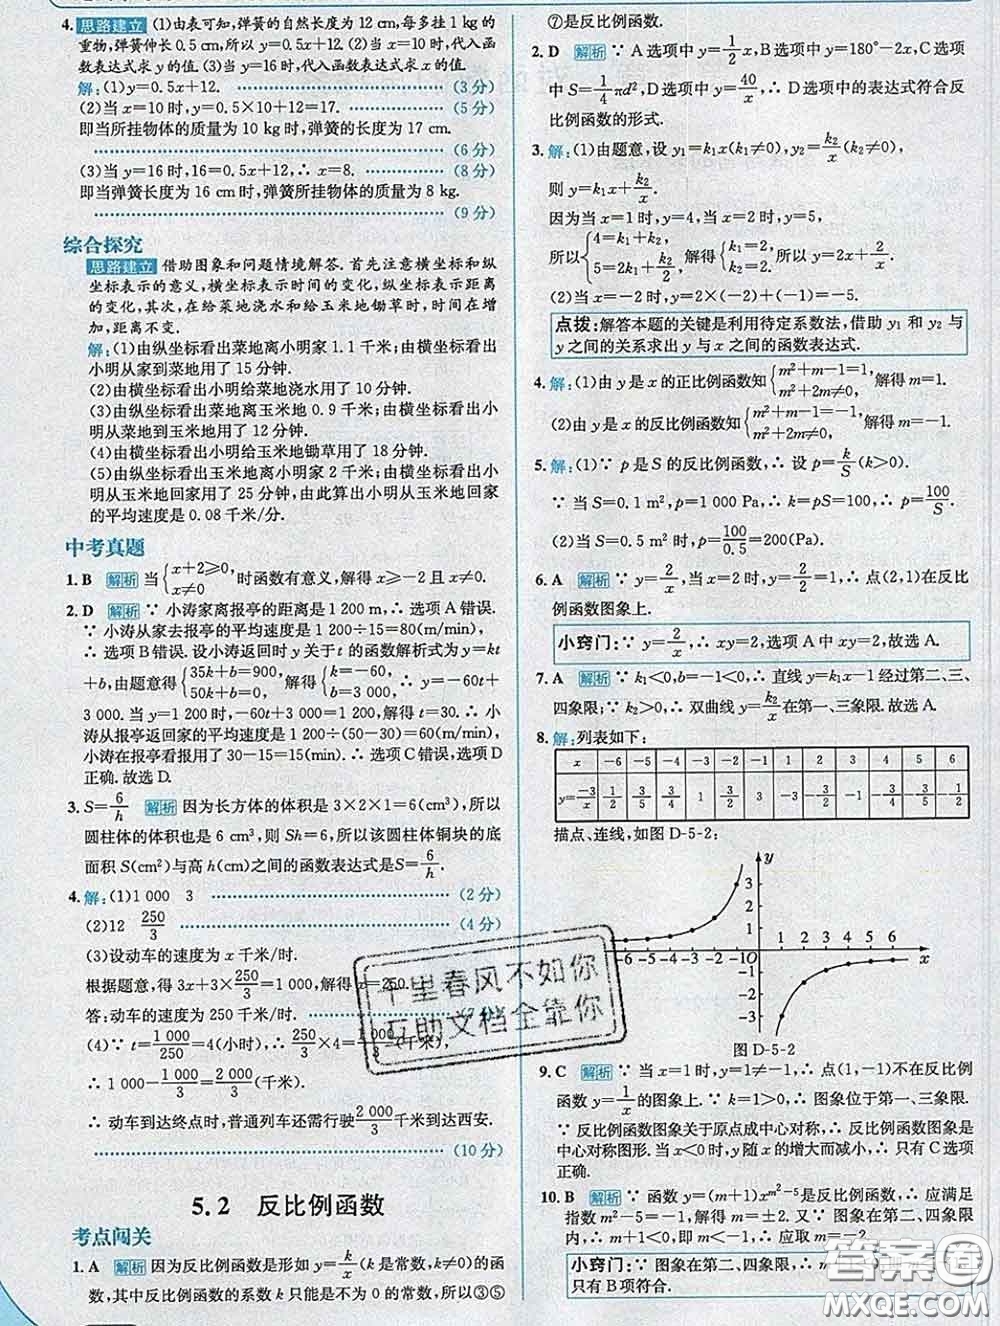 4. 思路建立 (1)由表可知,弹簧的自然长度为 12 cm,每多挂 1 kg 的
重物,弹簧伸长 0.5 cm,所以 y=0.5x+12. (2)当 x=10 时,代入函
数表达式求 y 的值. (3)当 y=16 时,代入函数表达式求 x 的值.
解:(1)y=0.5x+12. (3 分)
(2)当 x=10 时,y=0.5×10+12=17. (5 分)
即当所挂物体的质量为 10 kg 时,弹簧的长度为 17 cm.
(6 分)
(3)当 y=16 时,16=0.5x+12,∴ x=8. (8 分)
即当弹簧长度为 16 cm 时,弹簧所挂物体的质量为 8 kg.
(9 分)
综合探究
思路建立 借助图象和问题情境解答.首先注意横坐标和纵
坐标表示的意义,横坐标表示时间的变化,纵坐标表示距离
的变化,其次,在给菜地浇水和给玉米地锄草时,时间在增
加,距离不变.
解:(1)由纵坐标看出菜地离小明家 1.1 千米;由横坐标看出
小明从家到菜地用了 15 分钟.
(2)由横坐标看出小明给菜地浇水用了 10 分钟.
(3)由纵坐标看出菜地离玉米地 0.9 千米;由横坐标看出小
明从菜地到玉米地用了 12 分钟.
(4)由横坐标看出小明给玉米地锄草用了 18 分钟.
(5)由纵坐标看出玉米地离小明家 2 千米;由横坐标看出小
明从玉米地回家用了 25 分钟,由此算出小明从玉米地回家
的平均速度是 0.08 千米/分.
中考真题
1. B 解析 当{x+2≥0, x≠0 时函数有意义,解得 x≥-2 且 x≠0.
2. D 解析 ∵ 小涛家离报亭的距离是 1 200 m,∴ 选项 A 错误.
∵ 小涛从家去报亭的平均速度是 1 200÷15=80(m/min),
∴ 选项 B 错误. 设小涛返回时 y 关于 t 的函数解析式为 y=kt
+b,由题意得{35k+b=900, 50k+b=0, 解得{k=-60, b=3 000, ∴ y=-60t+
3 000. 当 y=1 200 时,-60t+3 000=1 200,解得 t=30. ∴ 小
涛从报亭返回家中的平均速度是 1 200÷(50-30)=60(m/min),
小涛在报亭看报用了 30-15=15(min),∴ 选项 C 错误,选项 D
正确.故选 D.
3. S=6/h 解析 因为长方体的体积是 3×2×1=6(cm³),所以
圆柱体的体积也是 6 cm³,则 Sh=6,所以该圆柱体铜块的底
面积 S(cm²)与高 h(cm)之间的函数表达式是 S=6/h.
4. 解:(1)1 000 3 (2 分)
(2)12 250/3 (4 分)
(3)设动车的速度为 x 千米/时.
根据题意,得 3x+3×250/3=1 000,解得 x=250.
答:动车的速度为 250 千米/时.
(4)∵ t=1 000/250=4(小时),∴ 250/3×4=1 000/3(千米),
∴ 1 000-1 000/3=2 000/3(千米).
∴ 动车到达终点时,普通列车还需行驶 2 000/3 千米到达西安.
(10 分)
5.2 反比例函数
考点闯关
1. A 解析 因为反比例函数是形如 y=k/x(k 是常数,k≠0)的函
数,其中反比例函数的系数 k 只能是不为 0 的常数,所以③⑤
⑦是反比例函数.
2. D 解析 ∵ A 选项中 y=1/2x,B 选项中 y=180°-2x,C 选项
中 S=1/4πd²,D 选项中 y=40/x,∴ D 选项中的表达式符合反
比例函数的形式.
3. 解:(1)由题意,设 y₁=k₁x(k₁≠0),y₂=k₂/x(k₂≠0),
则 y=k₁x+k₂/x.
因为当 x=1 时,y=4,当 x=2 时,y=5,
所以{4=k₁+k₂, 5=2k₁+k₂/2, 解得{k₁=2, k₂=2. 所以 y=2x+2/x.
(2)当 x=-2 时,y=2×(-2)+(-1)=-5.
点拨:解答本题的关键是利用待定系数法,借助 y₁ 和 y₂ 与
y 之间的关系求出 y 与 x 之间的函数表达式.
4. 解:(1)由 y 是 x 的正比例函数知{m²+m-1=1, m²+2m≠0, 解得 m=1.
(2)由 y 是 x 的反比例函数知{m²+m-1=-1, m²+2m≠0, 解得 m=-1.
5. 解:(1)∵ p 是 S 的反比例函数,∴ 设 p=k/S(k>0).
∵ 当 S=0.1 m²,p=1 000 Pa,∴ k=pS=100,∴ p=100/S.
(2)当 S=0.5 m² 时,p=100/0.5=200(Pa).
6. A 解析 ∵ y=2/x,当 x=2 时,y=2/2=1,∴ 点(2,1)在反比
例函数图象上.
小窍门:∵ y=2/x,∴ xy=2,选项 A 中 xy=2,故选 A.
7. A 解析 ∵ k₁<0,b=-1<0,∴ 直线 y=k₁x-1 经过第二、三、
四象限;∵ k₂>0,∴ 双曲线 y=k₂/x 在第一、三象限.故选 A.
8. 解:列表如下:
x -6 -5 -4 -3 -2 -1 1 2 3 4 5 6
y=-3/x 1/2 3/5 3/4 1 3/2 3 -3 -3/2 -1 -3/4 -3/5 -1/2
描点、连线,如图 D-5-2:
y
3
2
1
-6 -5 -4 -3 -2 -1 O 1 2 3 4 5 6 x
-1
-2
-3
图 D-5-2
9. C 解析 ∵ 当 x=1 时,y=1≠-1,∴ 点(1,-1)不在反比例
函数 y=1/x 的图象上. ∵ k=1>0,∴ 图象位于第一、三象限.
∵ 反比例函数图象关于原点成中心对称,∴ 反比例函数图象是
中心对称图形.当 x<0 时,y 随 x 的增大而减小,∴ 只有 C 选项
正确.
10. B 解析 ∵ 函数 y=(m+1)x^(m²-5)是反比例函数,∴ 应满足
指数 m²-5=-1,解得 m=±2. 又∵ 图象在第二、四象限
内,∴
小窍门:∵ 图象在第二、四象限,
只有 B 项符合.
千里春风不如你
互助文档全靠你
答案圈
MXQE.COM